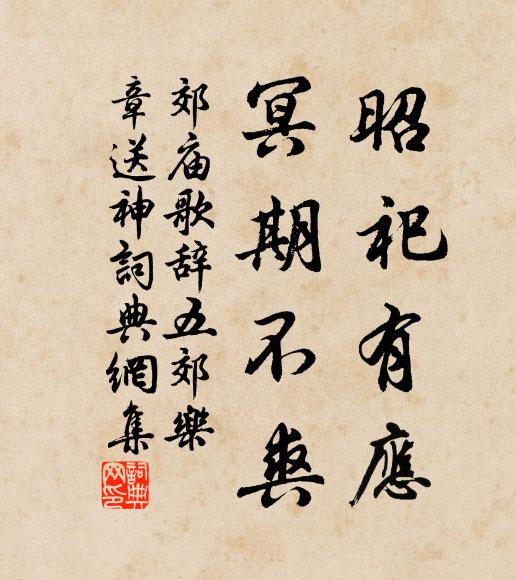 昭祀有應
冥期不爽
郊庙歌辞五郊樂
章送神詞典網集